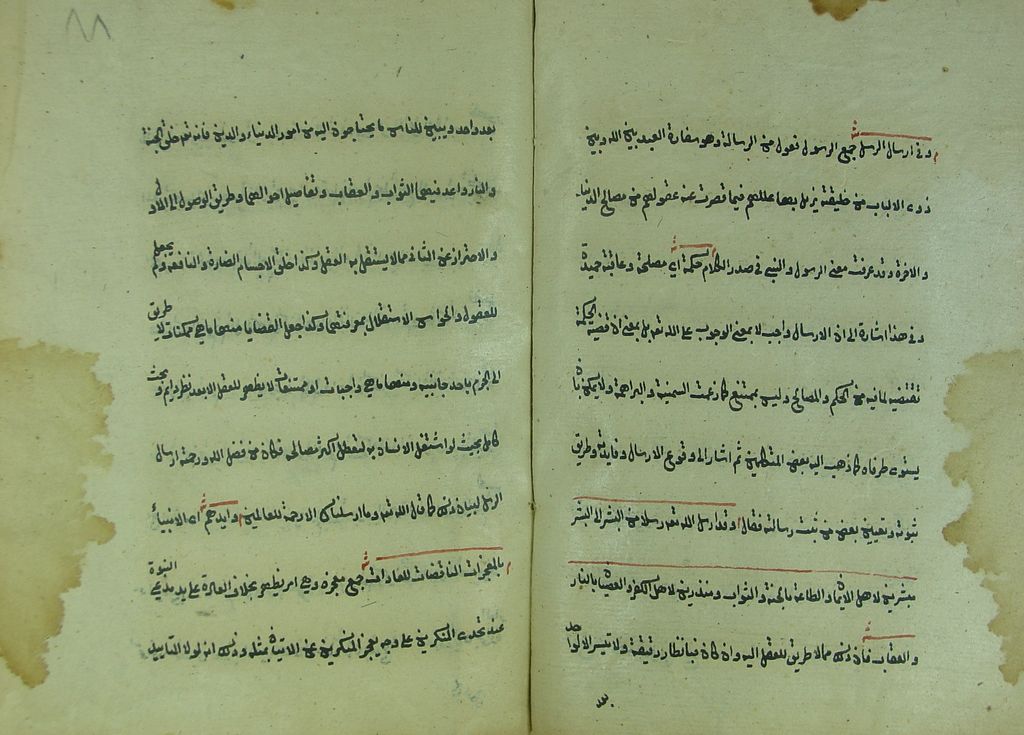 وفي ارسال الرسل جمع الرسول فعول من الرسالة وهو سفارة العبد بين الله وبين
ذوى الالباب من خليقته يزيل بها عللهم فيما قصرت عنه عقولهم من مصالح الدنيا
والاخرة وقد عرفت معنى الرسول والنبي في صدر الكلام حكمة اي مصلحة وعاقبة حميدة
وفي هذا اشارة الى ان الارسال واجب لا بمعنى الوجوب على الله تعه بل بمعنى ان قضية الحكمة
تقتضيه لما فيه من الحكم والمصالح وليس بممتنع كما زعمت السمنية والبراهمة ولا بممكن
يستوى طرفاه كما ذهب اليه بعض المتكلمين ثم اشار الى وقوع الارسال وفايدته وطريق
ثبوته وتعيين بعض من ثبت رسالته فقال وقد ارسل الله تعه رسلا من البشر الى البشر
مبشرين لاهل الايمان والطاعة بالجنة والثواب ومنذرين لاهل الكفر والعصيان بالنار
والعقاب فان ذلك مما لا طريق للعقل اليه وان كان فبانظار دقيقة ولا تتيسر الا لواحد
بعد
بعد واحد ويبين للناس ما يحتاجون اليه من امور الدنيا والدين فانه تعه خلق الجنة
والنار واعد فيهما الثواب والعقاب وتفاصيل احوالهما وطريق الوصول الى الاول
والاحتراز عن الثانى مما لا يستقل به العقل وكذا خلق الاجسام الضارة والنافعة ولم يجعل
للعقول والحواس الاستقلال بمعرفتهما وكذا جعل القضايا منها ما هي ممكنات لا طريق
الى الجزم باحد جانبيه ومنها ما هي واجبات او ممتنعات لا يظهر للعقل الا بعد نظر دايم وبحث
كامل بحيث لو اشتغل الانسان به لتعطل اكثر مصالحه فكان من فضل الله ورحمته ارسال
الرسل لبيان ذلك كما قال الله تعه وما ارسلناك الا رحمة للعالمين وايدهم اى الانبياء
بالمعجزات الناقضات للعادات جمع معجزة وهي امر يظهر بخلاف العادة على يد مدعي النبوة
عند تحدى المنكرين على وجه يعجز المنكرين عن الاتيان بمثله وذلك انه لولا التاييد